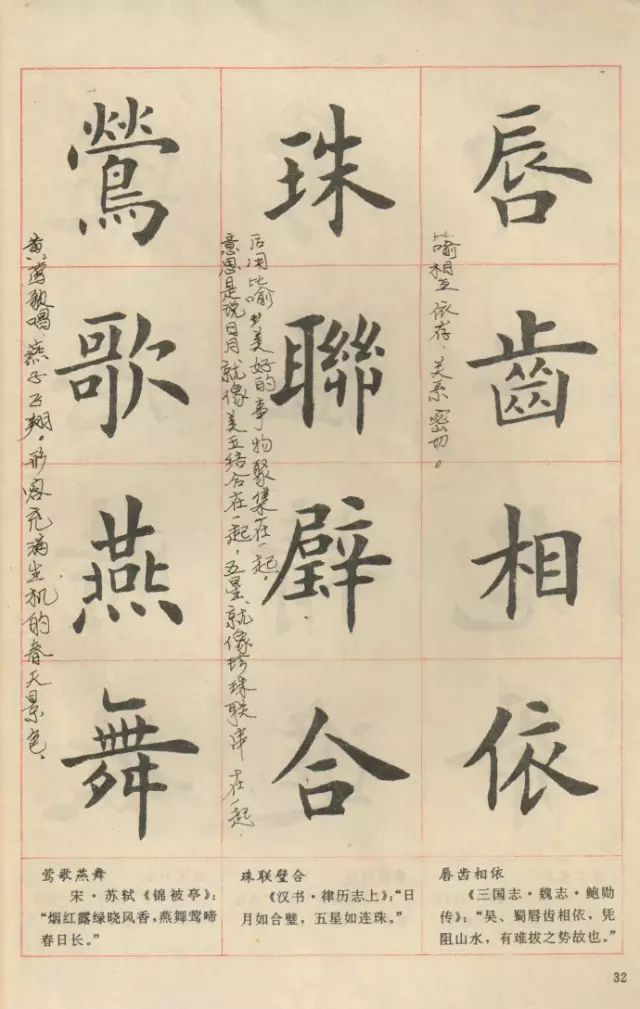 唇齒相依
比喻相互依存,关系密切。
唇齿相依
《三国志·魏志·鲍勋
传》:“吴、蜀唇齿相依,凭
阻山水,有难拔之势故也。”
珠聯璧合
后用比喻美好的事物聚集在一起。
意思是说日月就像美玉结合在一起,五星就像珍珠联串在一起.
珠联璧合
《汉书·律历志上》:“日
月如合璧,五星如连珠。”
鶯歌燕舞
黄莺歌唱,燕子飞翔。形容充满生机的春天景色.
莺歌燕舞
宋·苏轼《锦被亭》:
“烟红露绿晓风香,燕舞莺啼
春日长。”
32